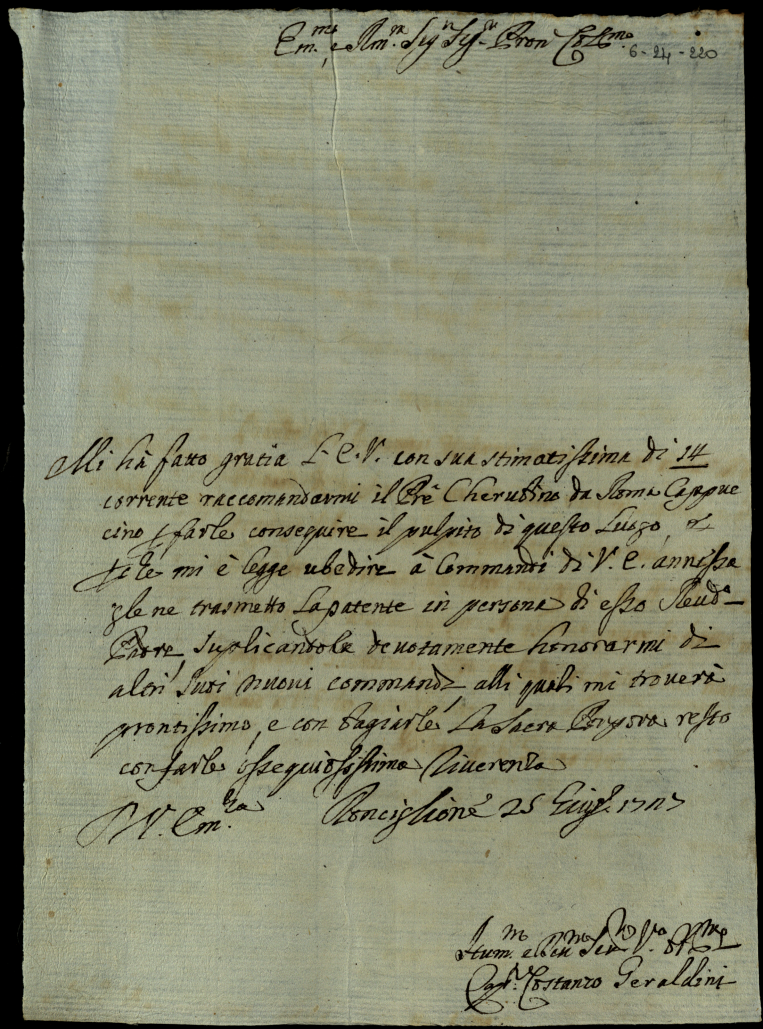 Em.mo e Rm.o Sig.r Sig.r Pron Col.mo
6-24-220
Mi hà fatto gratia L'E.V. con sua stimatissima di 14
corrente raccomandarmi il Prê Cherubino da Roma Cappuc
cino p farle conseguire il pulpito di questo Luogo, e
p che mi è legge ubedire à Commandi di V.E. annessa
gle ne trasmetto La patente in persona di esso Reud.o
Padre, Suplicandola devotamente honorarmi di
altri Suoi nuovi commandi, alli quali mi troverà
prontissimo, e con bagiarle La Sacra Porpora resto
con farle ossequiosissima riverenza
D V. Em.za Ronciglione 25 Giug.o 1707
Hum.mo e Den.mo Ser.re V.o Obl.mo
Costanzo Geraldini